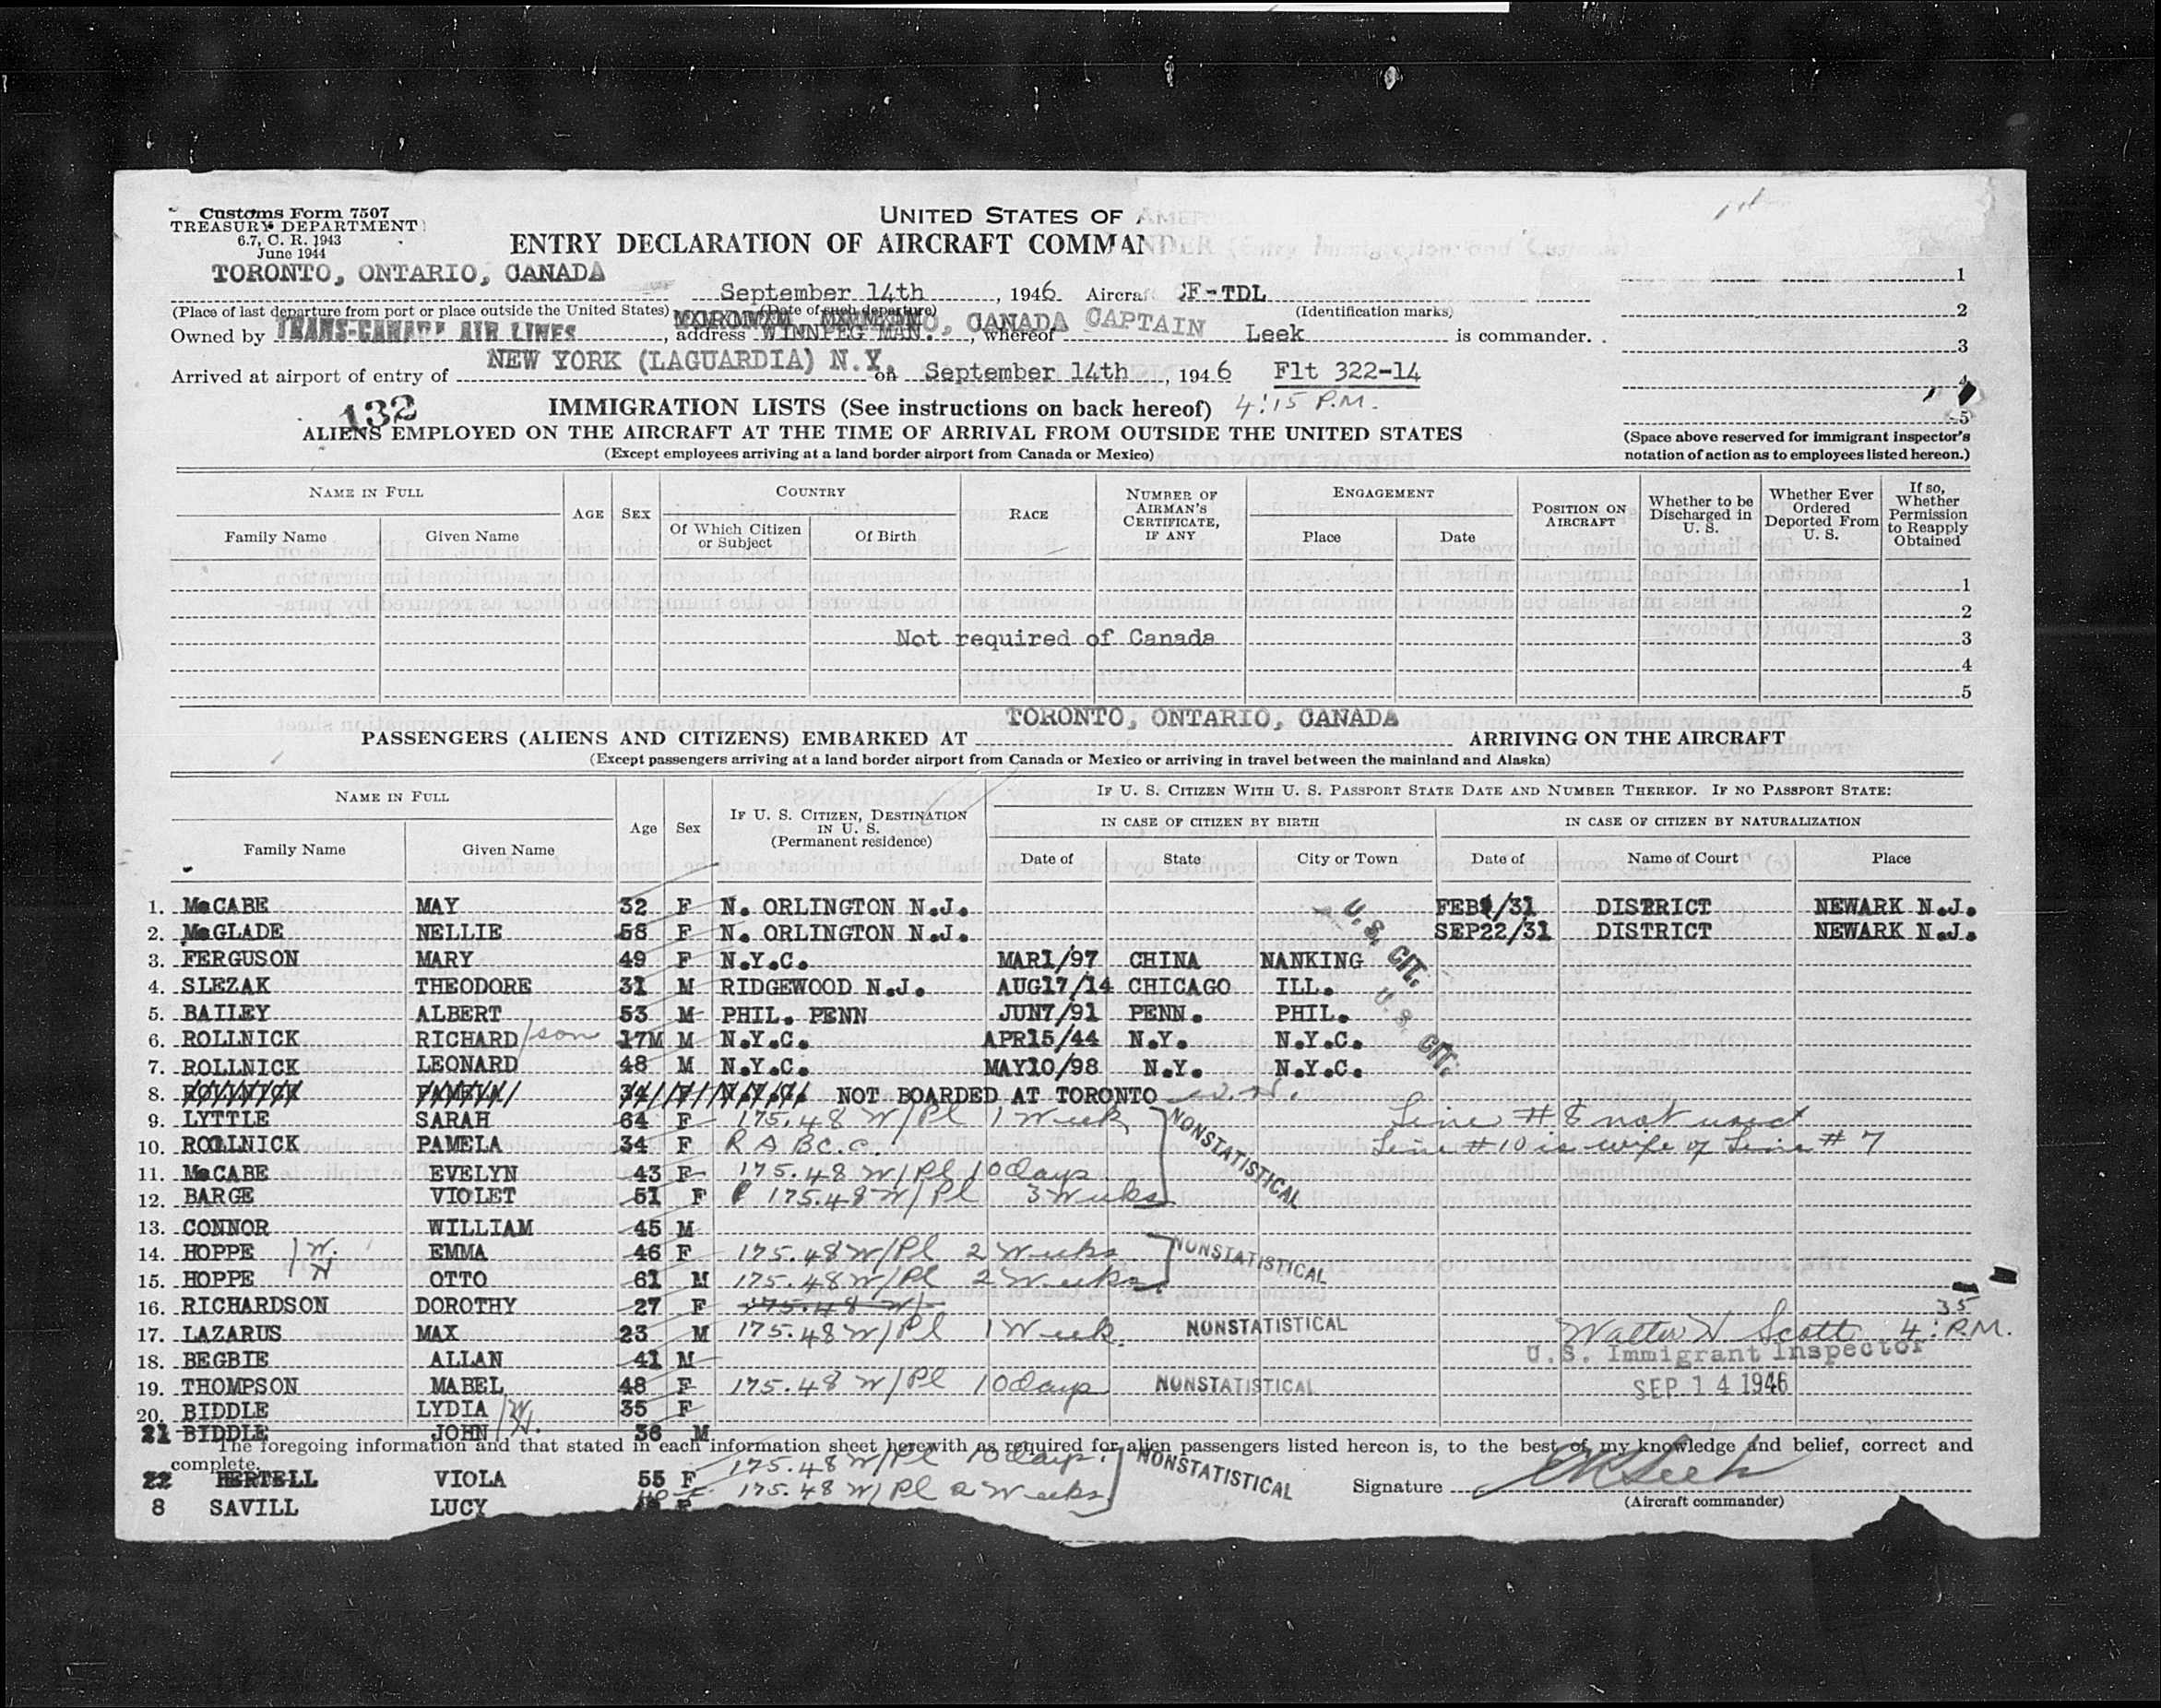 Customs Form 7507
TREASURY DEPARTMENT
6.7, C. R. 1943
June 1944
UNITED STATES OF AMERICA
ENTRY DECLARATION OF AIRCRAFT COMMANDER (Entry Immigration and Customs)
TORONTO, ONTARIO, CANADA September 14th, 1946 Aircraft CF-TDL 1
(Place of last departure from port or place outside the United States) (Date of such departure) (Identification marks) 2
Owned by TRANS-CANADA AIR LINES, address WINNIPEG MAN., CANADA, whereof CAPTAIN Leek is commander.
3
Arrived at airport of entry of NEW YORK (LAGUARDIA) N.Y. on September 14th, 1946 Flt 322-14
4
132 IMMIGRATION LISTS (See instructions on back hereof) 4:15 P.M.
5
ALIENS EMPLOYED ON THE AIRCRAFT AT THE TIME OF ARRIVAL FROM OUTSIDE THE UNITED STATES
(Except employees arriving at a land border airport from Canada or Mexico)
(Space above reserved for immigrant inspector's notation of action as to employees listed hereon.)
NAME IN FULL AGE SEX COUNTRY RACE NUMBER OF AIRMAN'S CERTIFICATE, IF ANY ENGAGEMENT POSITION ON AIRCRAFT Whether to be Discharged in U. S. Whether Ever Ordered Deported From U. S. If so, Whether Permission to Reapply Obtained
Family Name Given Name Of Which Citizen or Subject Of Birth Place Date
1
2
Not required of Canada 3
4
5
TORONTO, ONTARIO, CANADA
PASSENGERS (ALIENS AND CITIZENS) EMBARKED AT ARRIVING ON THE AIRCRAFT
(Except passengers arriving at a land border airport from Canada or Mexico or arriving in travel between the mainland and Alaska)
NAME IN FULL Age Sex IF U. S. CITIZEN, DESTINATION IN U. S. (Permanent residence) IF U. S. CITIZEN WITH U. S. PASSPORT STATE DATE AND NUMBER THEREOF. IF NO PASSPORT STATE:
IN CASE OF CITIZEN BY BIRTH IN CASE OF CITIZEN BY NATURALIZATION
Family Name Given Name Date of State City or Town Date of Name of Court Place
1. McCABE MAY 32 F N. ORLINGTON N.J. FEB /31 DISTRICT NEWARK N.J.
2. McGLADE NELLIE 58 F N. ORLINGTON N.J. SEP22/31 DISTRICT NEWARK N.J.
3. FERGUSON MARY 49 F N.Y.C. MAR1/97 CHINA NANKING U.S. CIT.
4. SLEZAK THEODORE 31 M RIDGEWOOD N.J. AUG17/14 CHICAGO ILL.
5. BAILEY ALBERT 53 M PHIL. PENN JUN7/91 PENN. PHIL. U.S. CIT.
6. ROLLNICK RICHARD /son 17M M N.Y.C. APR15/44 N.Y. N.Y.C.
7. ROLLNICK LEONARD 48 M N.Y.C. MAY10/98 N.Y. N.Y.C.
8. ROLLNICK PAMELA 34 F N.Y.C. NOT BOARDED AT TORONTO
9. LYTTLE SARAH 64 F 175.48 W/Pl 1 Week Line # 8 not used
10. ROLLNICK PAMELA 34 F R A BC.C. NONSTATISTICAL Line #10 is wife of Line # 7
11. McCABE EVELYN 43 F 175.48 W/Pl 10 days
12. BARGE VIOLET 51 F 175.48 W/Pl 3 Weeks
13. CONNOR WILLIAM 45 M
14. HOPPE W. EMMA 46 F 175.48 W/Pl 2 Weeks NONSTATISTICAL
15. HOPPE H OTTO 61 M 175.48 W/Pl 2 Weeks
16. RICHARDSON DOROTHY 27 F 175.48 W/
17. LAZARUS MAX 23 M 175.48 W/Pl 1 Week. NONSTATISTICAL Walter W Scott 4:35 P.M.
18. BEGBIE ALLAN 41 M U.S. Immigrant Inspector
19. THOMPSON MABEL 48 F 175.48 W/Pl 10 days NONSTATISTICAL SEP 14 1946
20. BIDDLE LYDIA W 35 F
21 BIDDLE JOHN H. 36 M
The foregoing information and that stated in each information sheet herewith as required for alien passengers listed hereon is, to the best of my knowledge and belief, correct and
complete.
22 HERTELL VIOLA 55 F 175.48 W/Pl 10 days. NONSTATISTICAL Signature
8 SAVILL LUCY F 175.48 W/Pl 2 Weeks (Aircraft commander)